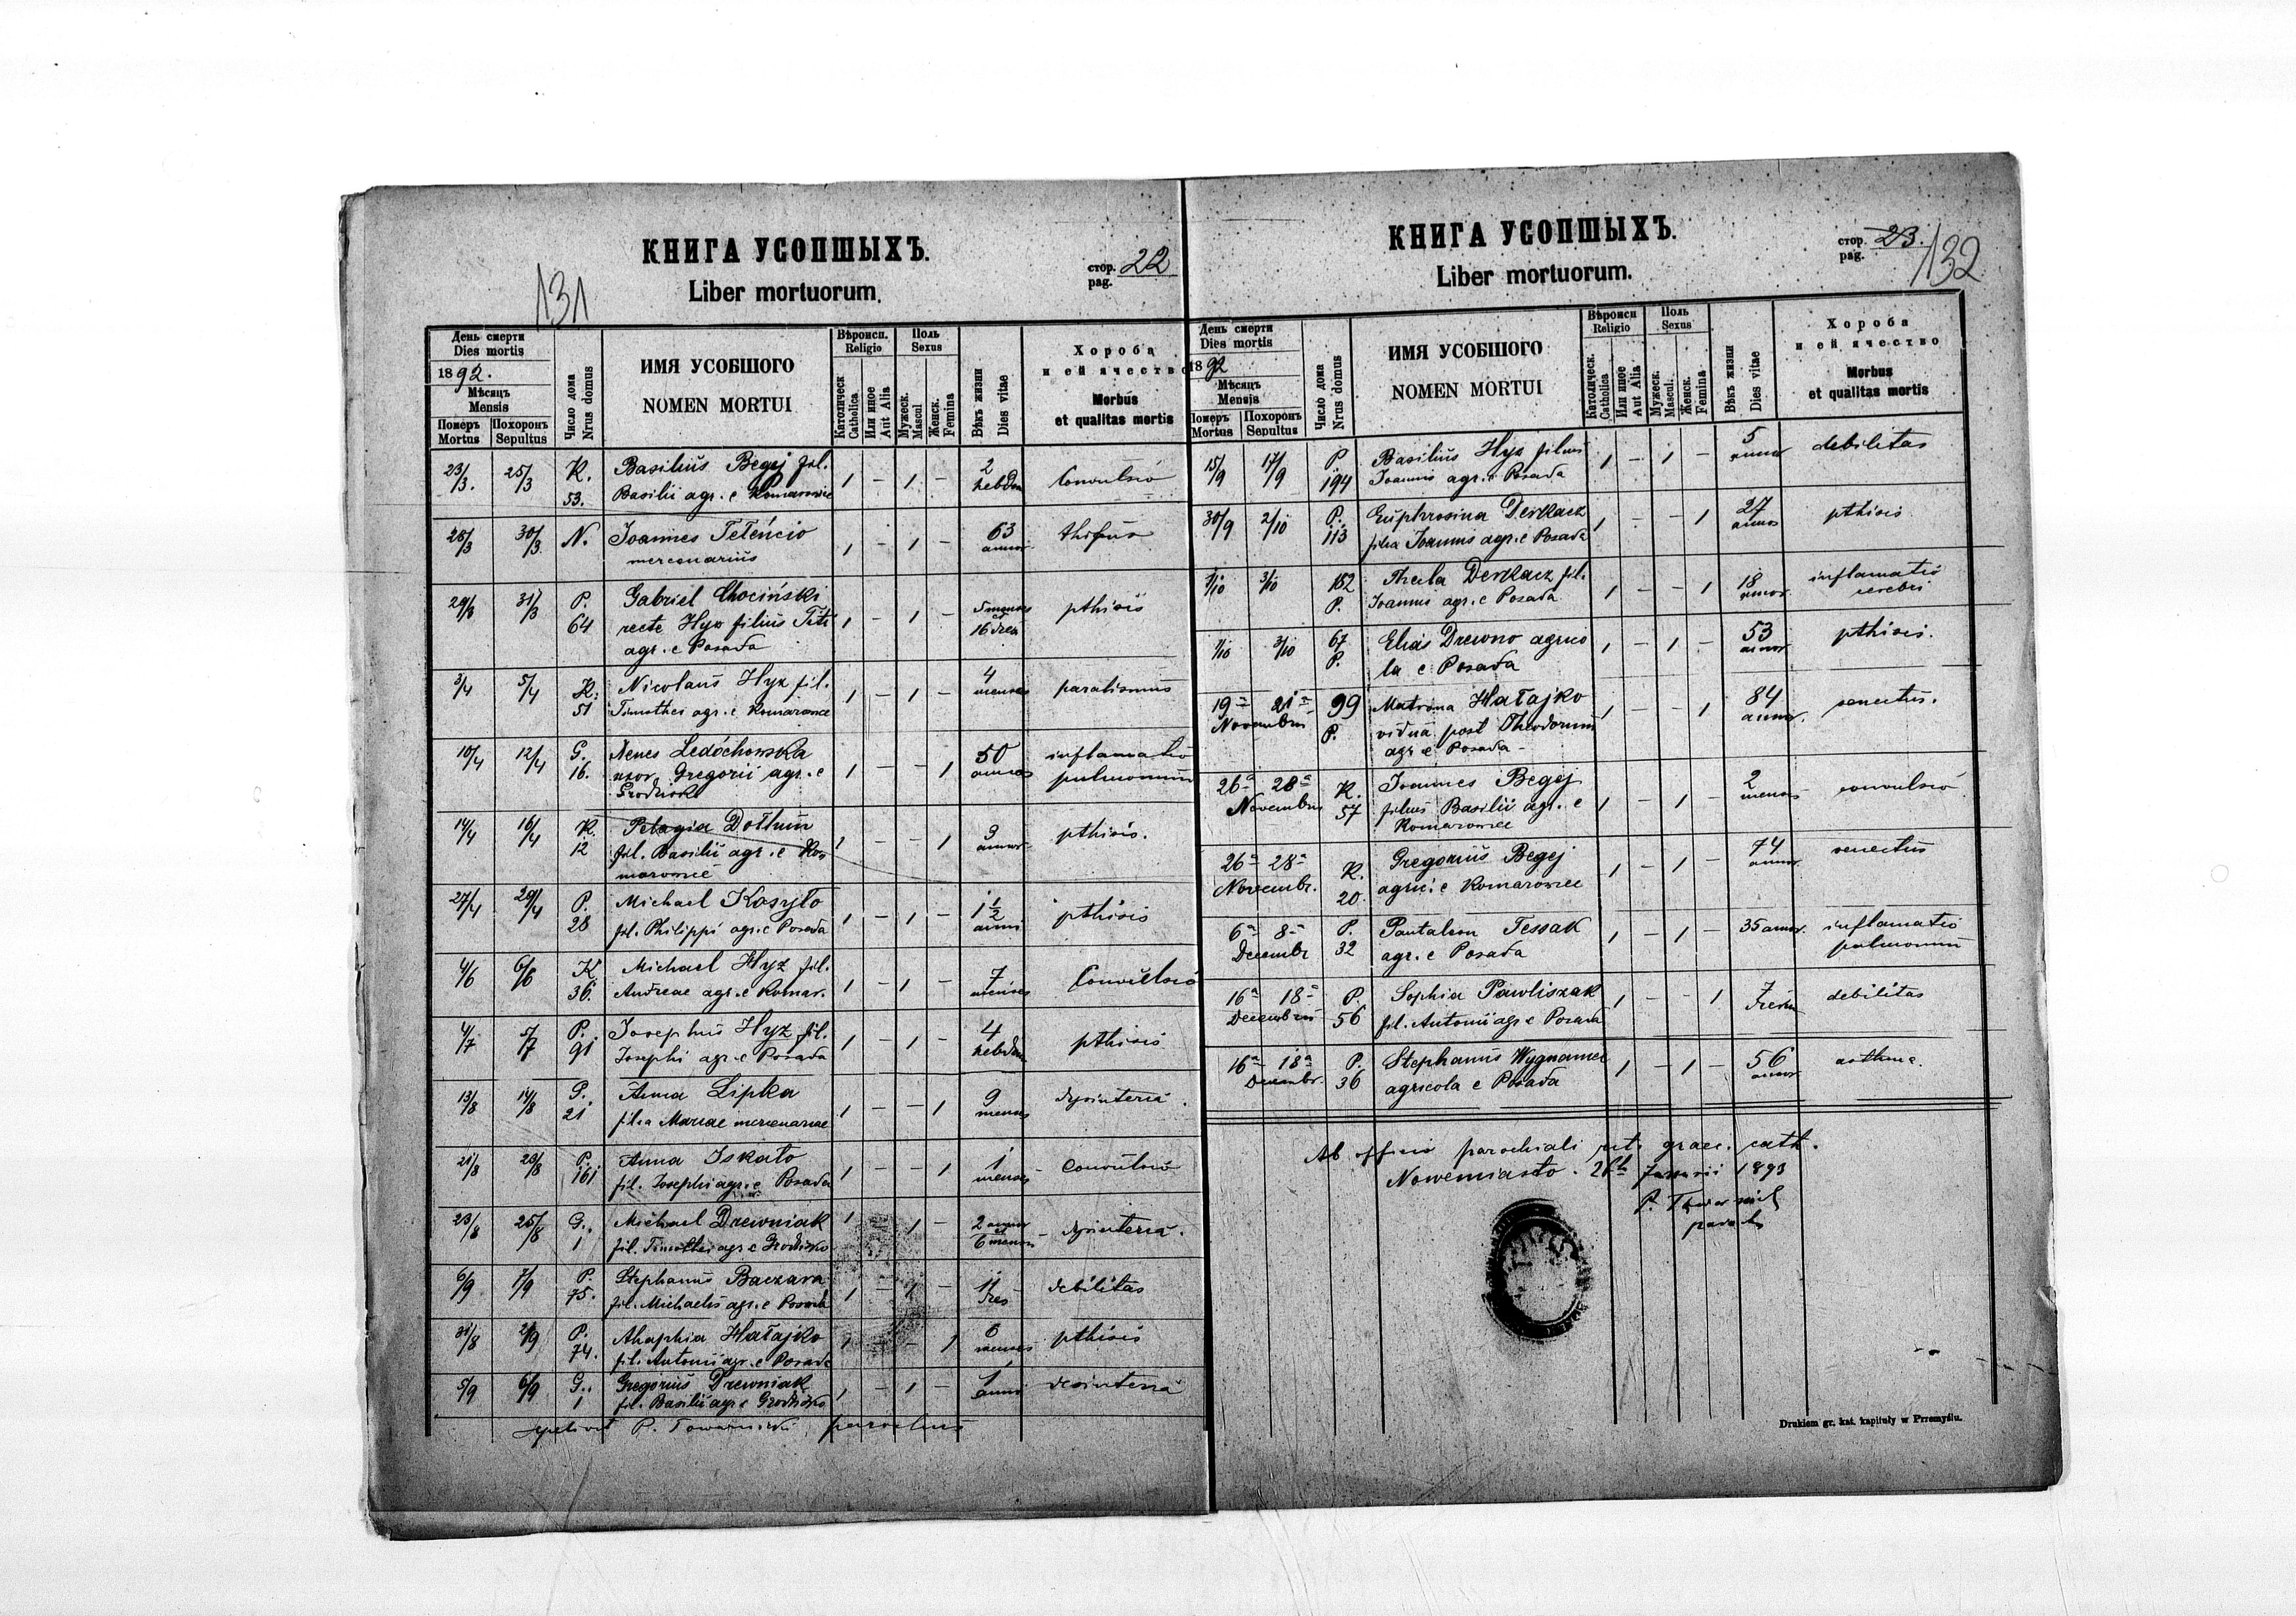 КНИГА УСОПШЫХЪ.
Liber mortuorum.
131
стор. 22
pag.
День смерти
Dies mortis
1892.
Мѣсяць
Mensis
Померъ Похоронъ
Mortus Sepultus
Число дома
Nrus domus
ИМЯ УСОБШОГО
NOMEN MORTUI
Вѣроисп.
Religio
Католическ
Catholica
Или иное
Aut Alia
Полъ
Sexus
Мужеск.
Mascul
Женск.
Femina
Вѣкъ жизни
Dies vitae
Хороба
и ей ячество
Morbus
et qualitas mortis
23/3. 25/3 K. 53. Basilius Begej fil. 1 – 1 – 2 hebdom Convulsio
Basilii agr. e Komarowice
28/3 30/3 N. Joannes Teleńcio 1 – 1 – 63 annor. thifus
mercenarius
29/3 31/3 P. 64 Gabriel Chociński 1 – 1 – 5 menses et 16 dies pthisis
recte Hyz filius Titi
agr. e Posada
3/4 5/4 K. 51 Nicolaus Hyz fil. 1 – 1 – 4 menses paralismus
Timothei agr. e Komarowice
10/4 12/4 G. 16. Ledóchowska 1 – – 1 50 annos inflamatio
uxor Gregorii agr. e pulmonum
Grodzisko
14/4 16/4 K. 12 Pelagia Dottum 1 – – 1 3 annor. pthisis.
fil. Basilii agr. e Ko
marowice
27/4 29/4 P. 28 Michael Koszyło 1 – 1 – 1 1/2 anni pthisis
fil. Philippi agr. e Posada
4/6 6/6 K 36. Michael Hyz fil. 1 – 1 – 7 menses Convulsio
Andreae agr. e Komar.
4/7 5/7 P. 91 Josephus Hyz fil. 1 – 1 – 4 hebdom pthisis
Josephi agr. e Posada
13/8 14/8 G. 21 Anna Lipka 1 – – 1 9 menses dysinteria.
filia Mariae mercenariae
21/8 23/8 P. 161 Anna Iskało 1 – – 1 1 menses Convulsio
fil. Josephi agr. e Posada
23/8 25/8 G. 1 Michael Drewniak 1 1 – 2 annor et 6 menses dysinteria.
fil. Timothei agr. e Grodzisko
6/9 7/9 P. 75. Stephanus Baczara 1 – 1 – debilitas
fil. Michaelis agr. e Posada
31/8 2/9 P. 74. Ahaphia Hałajko 1 – 1 6 menses pthisis
fil. Antonii agr. e Posada
5/9 6/9 G. 1 Gregorius Drewniak 1 – 1 – 1 anni desinteria
fil. Basilii agr. e Grodzisko
P. Towarnicki parochus
КНИГА УСОПШЫХЪ.
Liber mortuorum.
стор. 23.
pag.
132
День смерти
Dies mortis
1892
Мѣсяць
Mensis
Померъ Похоронъ
Mortus Sepultus
Число дома
Nrus domus
ИМЯ УСОБШОГО
NOMEN MORTUI
Вѣроисп
Religio
Католическ.
Catholica
Или иное
Aut Alia
Полъ
Sexus
Мужеск.
Mascul.
Женск.
Femina
Вѣкъ жизни
Dies vitae
Хороба
и ей ячество
Morbus
et qualitas mortis
15/9 17/9 P 194 Basilius Hyz filius 1 – 1 – 5 annor debilitas
Joannis agr. e Posada
30/9 2/10 P. 113 Euphrosina Derkacz 1 – – 1 27 annos pthisis
filia Joannis agr. e Posada
1/10 3/10 182 P. Thecla Derkacz fil. 1 – – 1 18 annor. inflamatio
Joannis agr. e Posada cerebri
1/10 3/10 67 P. Elias Drewno agrico 1 – 1 – 53 annor pthisis.
la e Posada
19 21 Novembris 99 P. Matrona Hałajko 1 – – 1 84 annor. senectus.
vidua post Theodorum
agr e Posada –
26 28 Novembris K. 57 Joannes Begej 1 – 1 2 menses convulsio.
filius Basilii agr. e
Komarowice
26 28 Novembr. K. 20 Gregorius Begej 1 – 1 – 74 annor. senectus
agric. e Komarowice
6 8 Decembr P. 32 Pantaleon Tessak 1 – 1 – 35 annor. inflamatio
agr. e Posada pulmonum
16 18 Decembris P. 56 Sophia Pawliszak 1 – – 1 7 debilitas
fil. Antonii agr e Posada
16 18 Decembr. P. 36 Stephanus Wygnanec 1 – 1 – 56 annor asthma.
agricola e Posada
Ab officio parochiali rit. graec. cath.
Nowemiasto. Januarii 1893
P. Towarnicki
Drukiem gr. kat. kapituły w Przemyślu.